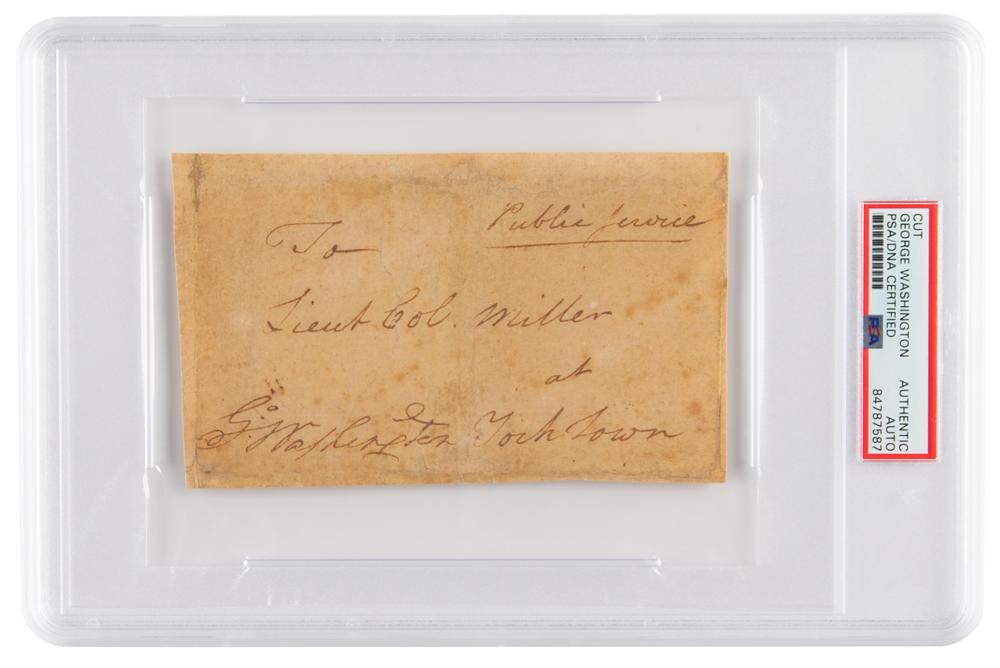 Public Service
To
Lieut Col. Miller
at
Go: Washington York Town
CUT
GEORGE WASHINGTON AUTHENTIC
PSA/DNA CERTIFIED AUTO
84787587
PSA